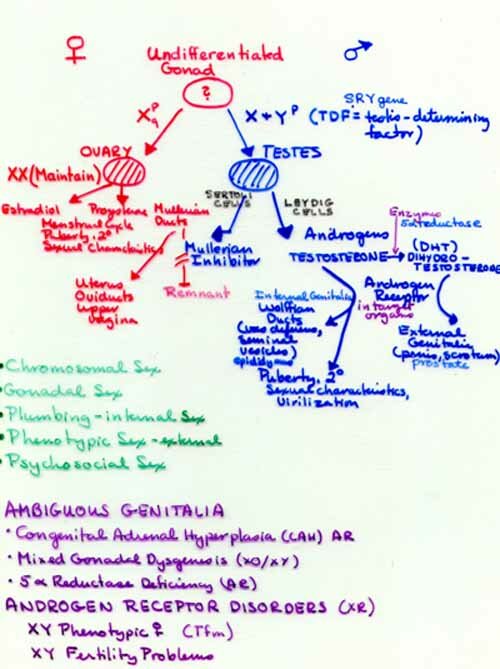 ♀
Undifferentiated
Gonad
♂
?
X p q
X + Y p
SRY gene
(TDF = testis-determining
factor)
OVARY
XX (Maintain)
TESTES
SERTOLI
CELLS
LEYDIG
CELLS
Estradiol
Progesterone
Menstrual Cycle
Puberty. 2°
Sexual Characteristics
Mullerian
Ducts
Uterus
Oviducts
Upper
Vagina
Mullerian
Inhibitor
Remnant
Androgens
TESTOSTERONE
Enzyme
5α reductase
(DHT)
DIHYDRO-
TESTOSTERONE
Androgen
Receptor
in target
organs
Internal Genitalia
Wolffian
Ducts
(vas deferens,
seminal
vesicles)
epididymus
Puberty. 2°
Sexual characteristics,
Virilization
External
Genitalia
(penis, scrotum)
prostate
• Chromosomal Sex
• Gonadal Sex
• Plumbing - internal Sex
• Phenotypic Sex - external
• Psychosocial Sex
AMBIGUOUS GENITALIA
• Congenital Adrenal Hyperplasia (CAH) AR
• Mixed Gonadal Dysgenesis (XO/XY)
• 5α Reductase Deficiency (AR)
ANDROGEN RECEPTOR DISORDERS (XR)
XY Phenotypic ♀ (Tfm)
XY Fertility Problems